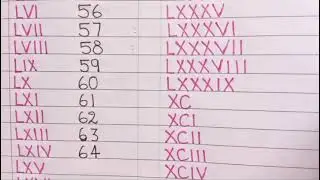 LVI 56 LXXXV
LVII 57 LXXXVI
LVIII 58 LXXXVII
LIX 59 LXXXVIII
LX 60 LXXXIX
LXI 61 XC
LXII 62 XCI
LXIII 63 XCII
LXIV 64 XCIII
LXV XCIV